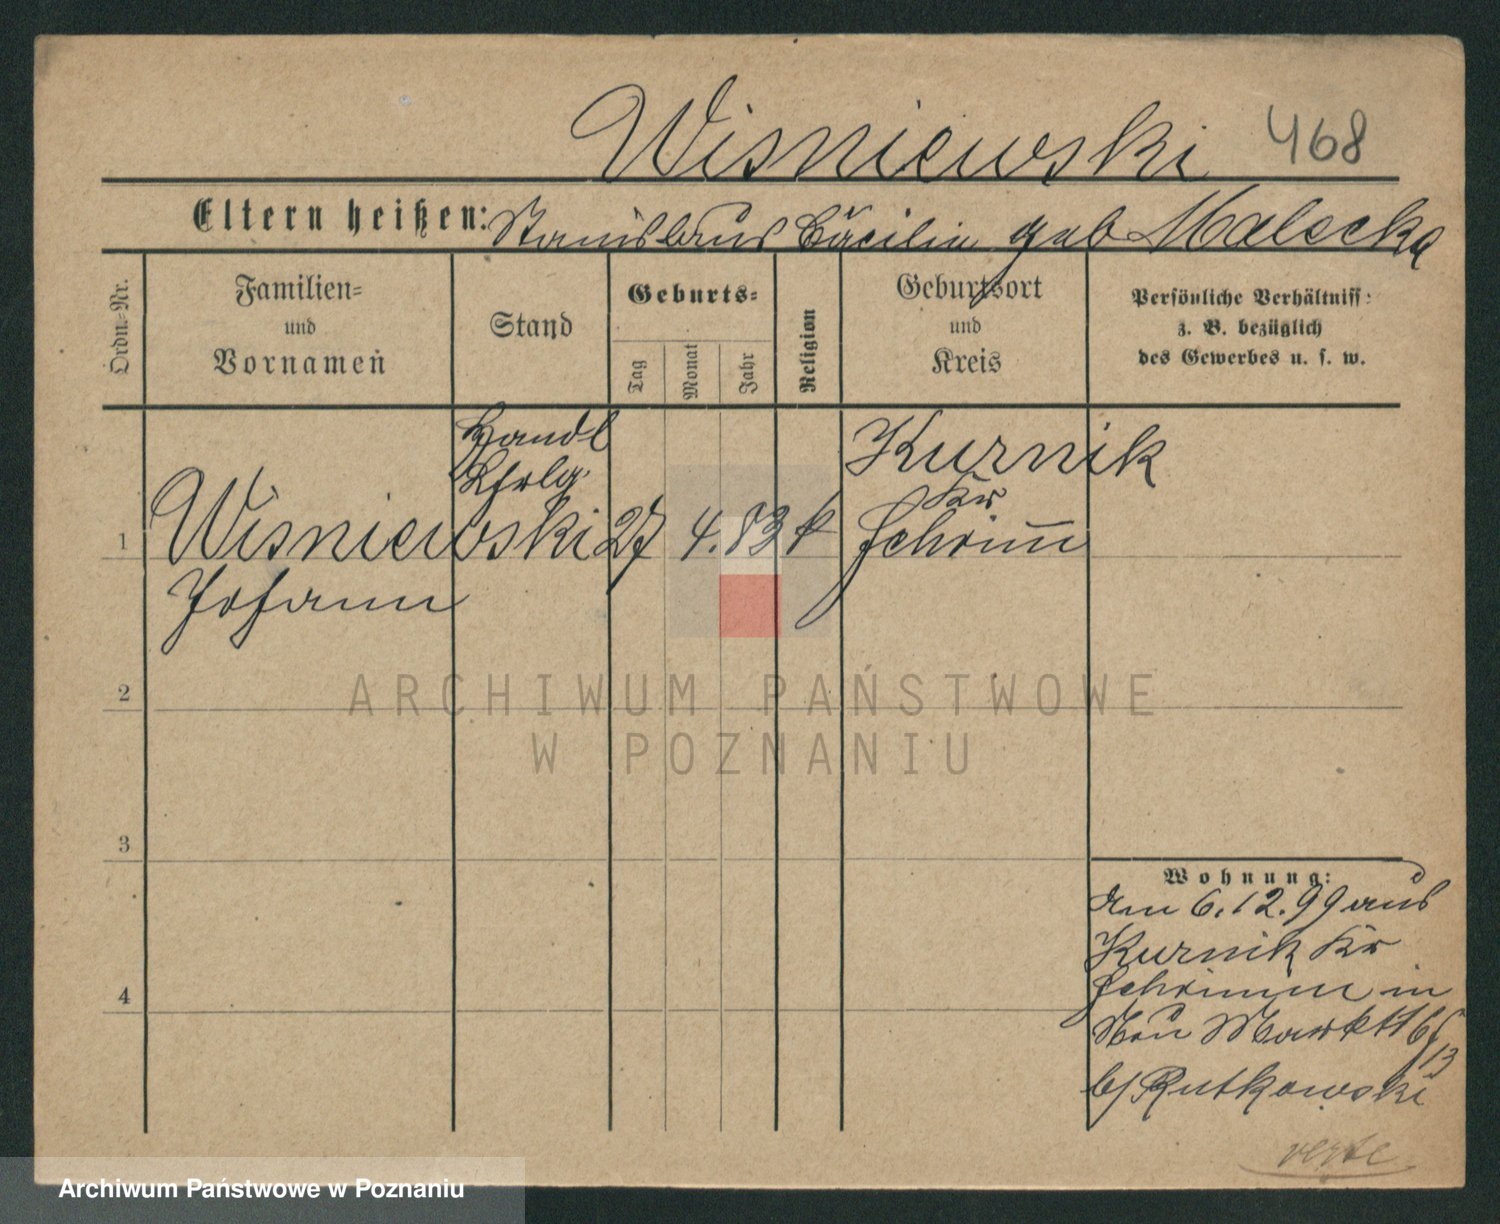 Wisniewski 468
Eltern heißen: Stanislaus Cäcilia geb Malecka
Ordn.-Nr.
Familien-
und
Vornamen
Stand
Geburts-
Tag
Monat
Jahr
Religion
Geburtsort
und
Kreis
Persönliche Verhältniss:
z. B. bezüglich
des Gewerbes u. s. w.
Handl
Lhrlg.
1 Wisniewski 27 4. 83 k
Johann
Kurnik
Kr
Schrimm
2
3
4
Wohnung:
Am 6.12.99 aus
Kurnik Kr
Schrimm in
Neu Markt 16/13
b/ Rutkowski
verte
ARCHIWUM PAŃSTWOWE
W POZNANIU
Archiwum Państwowe w Poznaniu